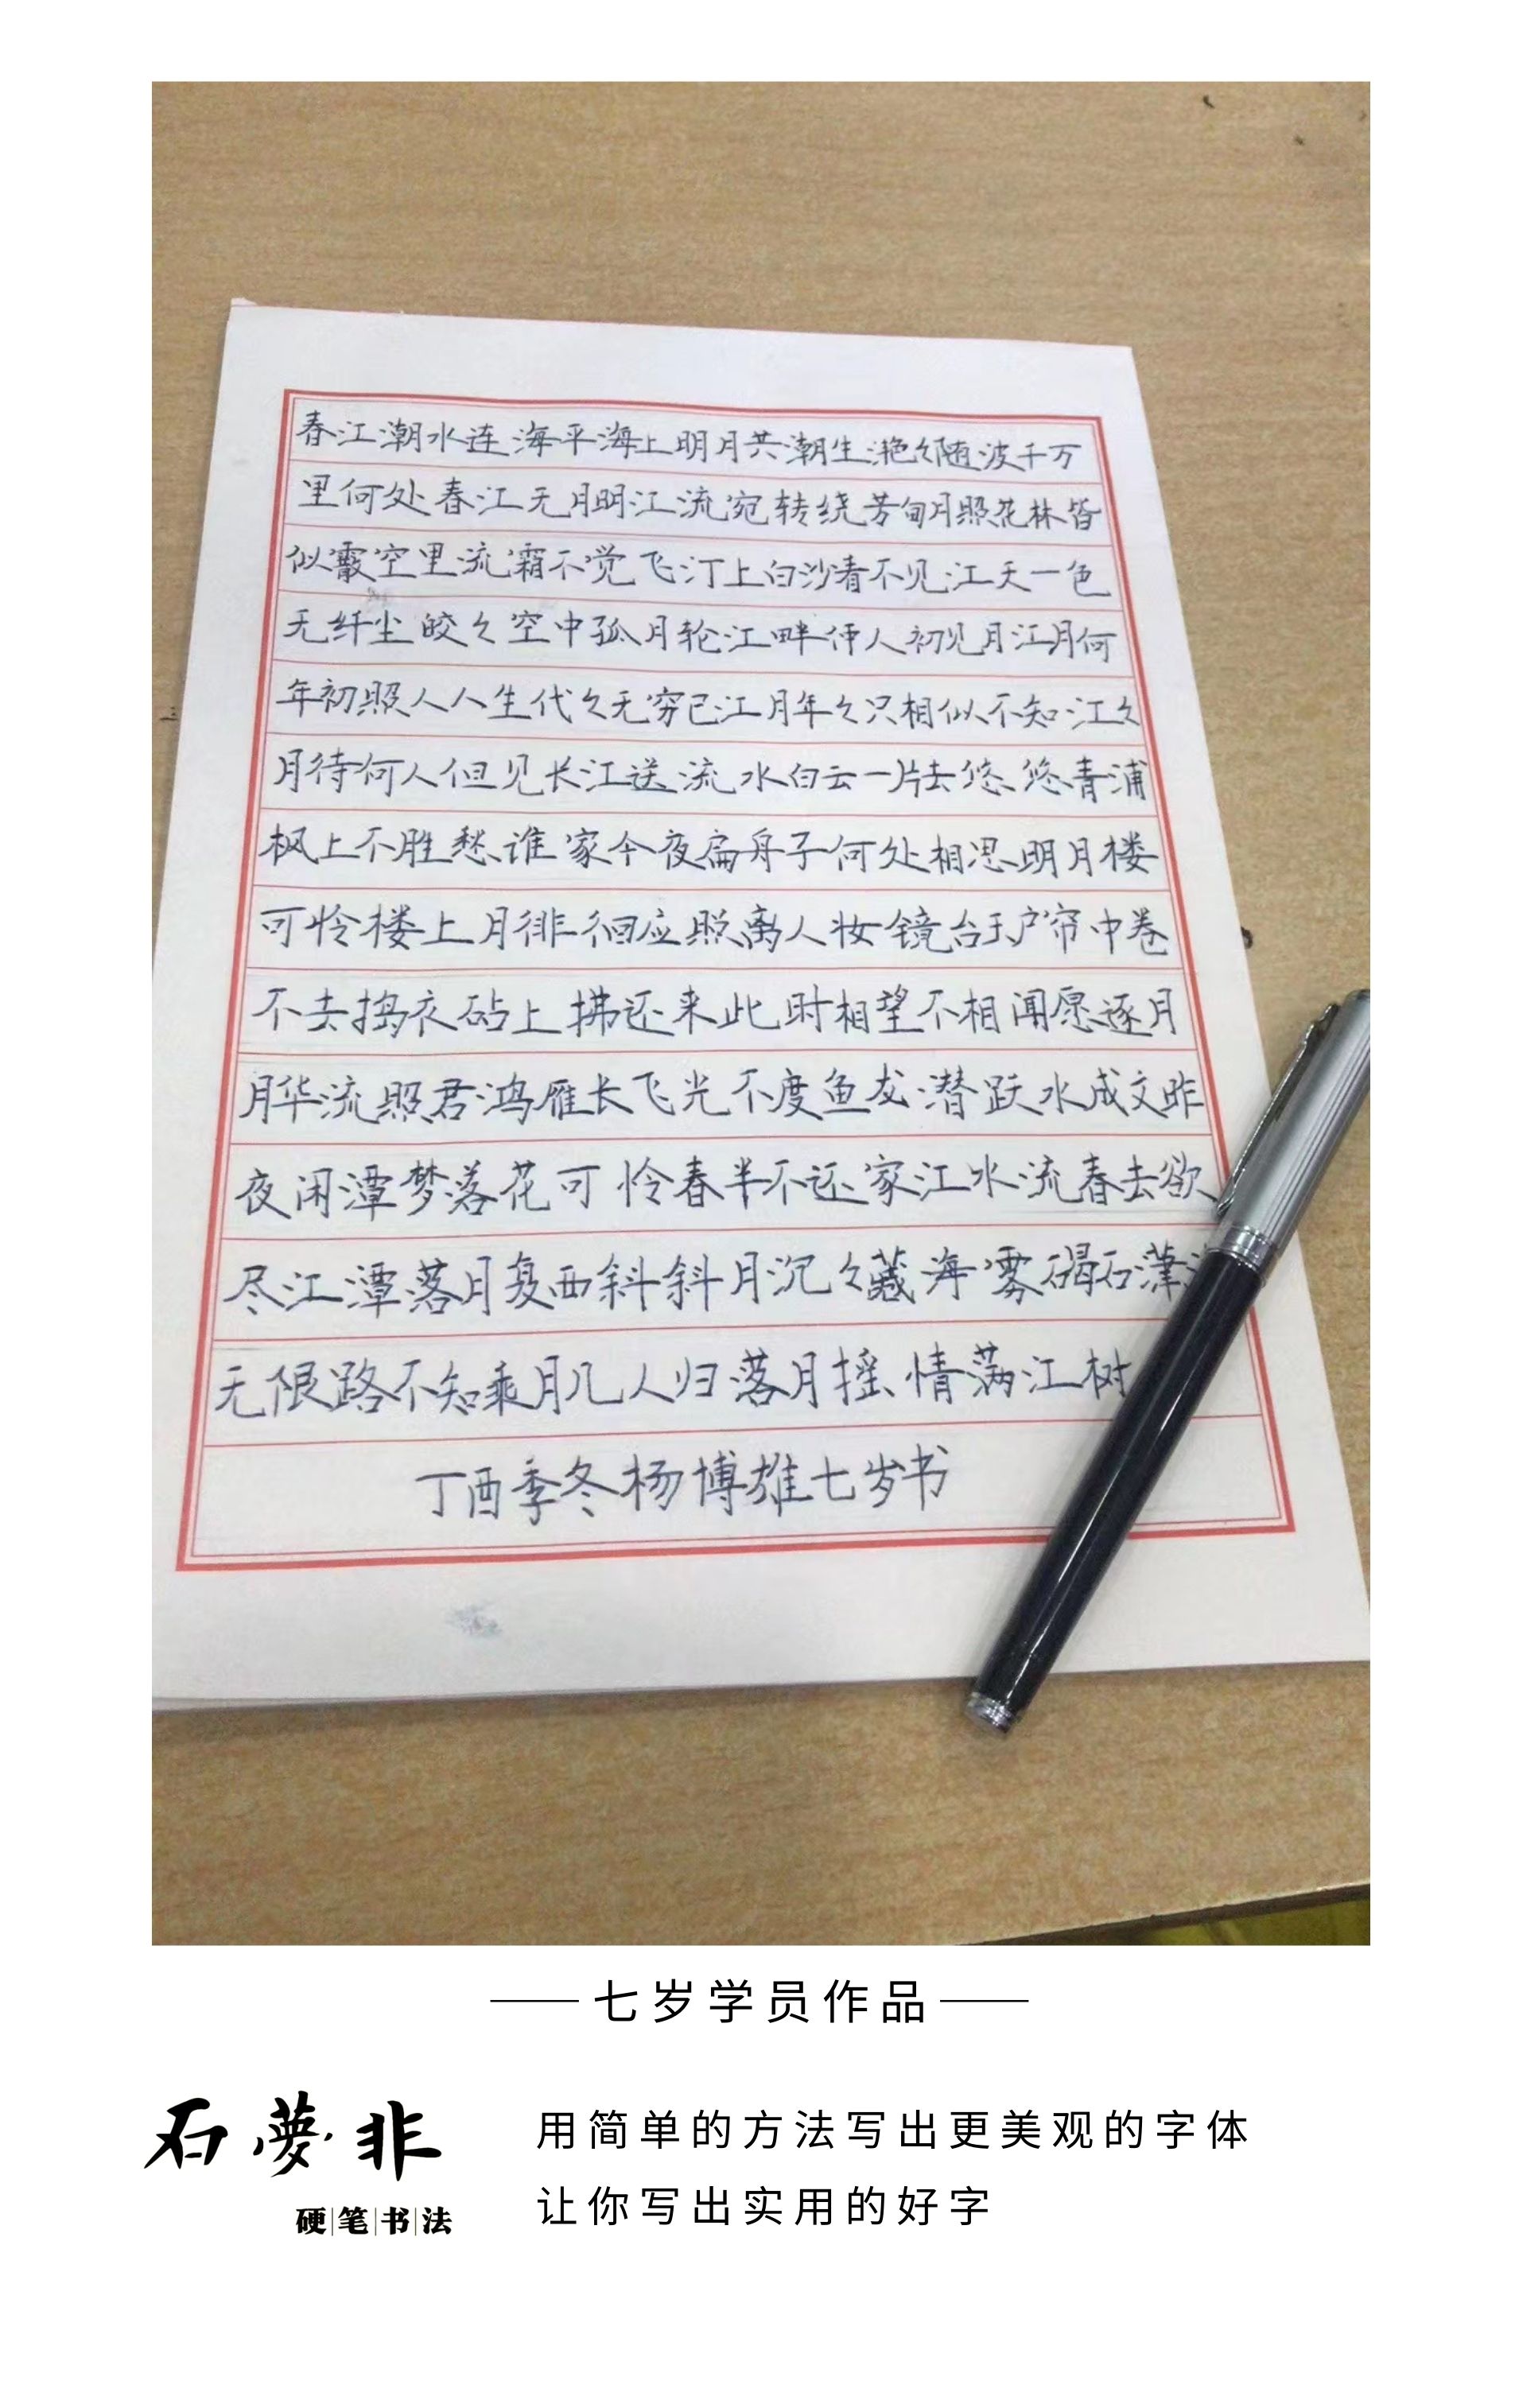 春江潮水连海平海上明月共潮生滟々随波千万
里何处春江无月明江流宛转绕芳甸月照花林皆
似霰空里流霜不觉飞汀上白沙看不见江天一色
无纤尘皎々空中孤月轮江畔何人初见月江月何
年初照人人生代々无穷已江月年々只相似不知江々
月待何人但见长江送流水白云一片去悠悠青浦
枫上不胜愁谁家今夜扁舟子何处相思明月楼
可怜楼上月徘徊应照离人妆镜台玉户帘中卷
不去捣衣砧上拂还来此时相望不相闻愿逐月
月华流照君鸿雁长飞光不度鱼龙潜跃水成文昨
夜闲潭梦落花可怜春半不还家江水流春去欲
尽江潭落月复西斜斜月沉々藏海雾碣石潇
无限路不知乘月几人归落月摇情满江树
丁酉季冬杨博雄七岁书
七岁学员作品
石梦非
硬笔书法
用简单的方法写出更美观的字体
让你写出实用的好字